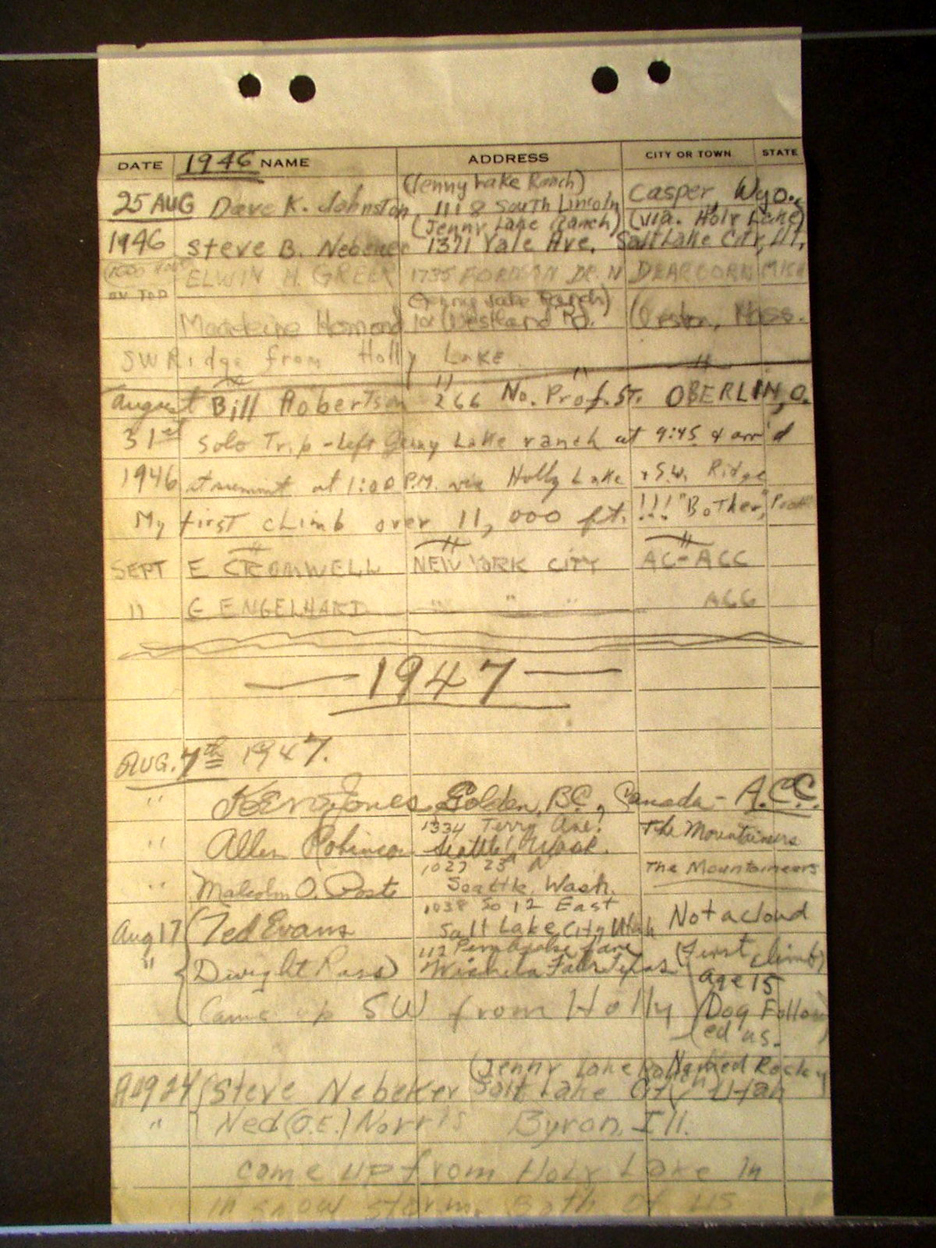 DATE 1946 NAME ADDRESS CITY OR TOWN STATE
(Jenny Lake Ranch)
25 AUG Dave K. Johnston, 1118 South Lincoln Casper, Wyo.
(Jenny Lake Ranch) (via. Holy Lake)
1946 Steve B. Nebeker 1371 Yale Ave. Salt Lake City, Ut.
ELWIN H. GREER 1735 FORDSON DR. N DEARBORN MICH
ON TOP
(Jenny Lake Ranch)
Madeleine 101 Westland Rd. Weston, Mass.
SW Ridge from Holly Lake
August Bill Robertson 266 No. Prof. St. OBERLIN, O.
31st Solo Trip - left Jenny Lake ranch at 9:45 & arr'd
1946 at summit at 1:00 P.M. via Holly Lake & S.W. Ridge
My first climb over 11,000 ft. !!! "Bother,"
SEPT E CROMWELL NEW YORK CITY AC-ACC
" G ENGELHARD " " " ACC
— 1947 —
AUG. 7th 1947.
" Ken Jones Golden, BC, Canada - A.C.C.
1334 Terry Ave. The Mountaineers
" Allen Robinson Seattle, Wash.
1027 23rd N The Mountaineers
" Malcolm O. Post Seattle, Wash.
1038 So 12 East
Aug 17 Ted Evans Salt Lake City Utah Not a cloud
112 Pembroke Lane (First climb)
" Dwight Ross Wichita Falls Texas age 15
Came up SW from Holly (Dog Follow
ed us.
(Jenny Lake Ranch) Named Rocky
Aug 24 Steve Nebeker Salt Lake City Utah
" Ned (O.E.) Norris Byron, Ill.
come up from Holy Lake in
in snow storm. Both of us